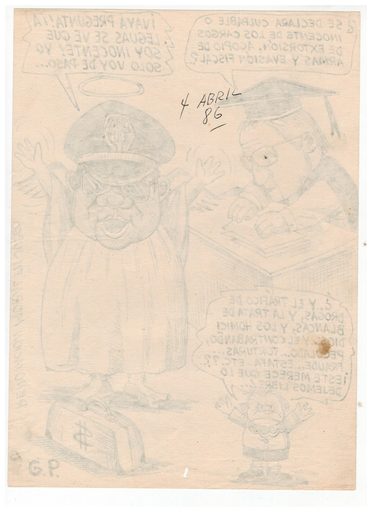 ¡VAYA PREGUNTA! ¡A
LEGUAS SE VE QUE
SOY INOCENTE! YO
SOLO VOY DE PASO...
¿SE DECLARA CULPABLE O
INOCENTE DE LOS CARGOS
DE EXTORSIÓN, ACOPIO DE
ARMAS Y EVASIÓN FISCAL?
4 ABRIL
86
¿Y EL TRAFICO DE
DROGAS, Y LA TRATA DE
BLANCAS, Y LOS HOMICI
DIOS, Y EL CONTRABANDO,
TORTURAS,
FRAUDE, ESTAFA, ETC..?
¡ESTE MERECE QUE LO
DEJEMOS LIBRE...
$